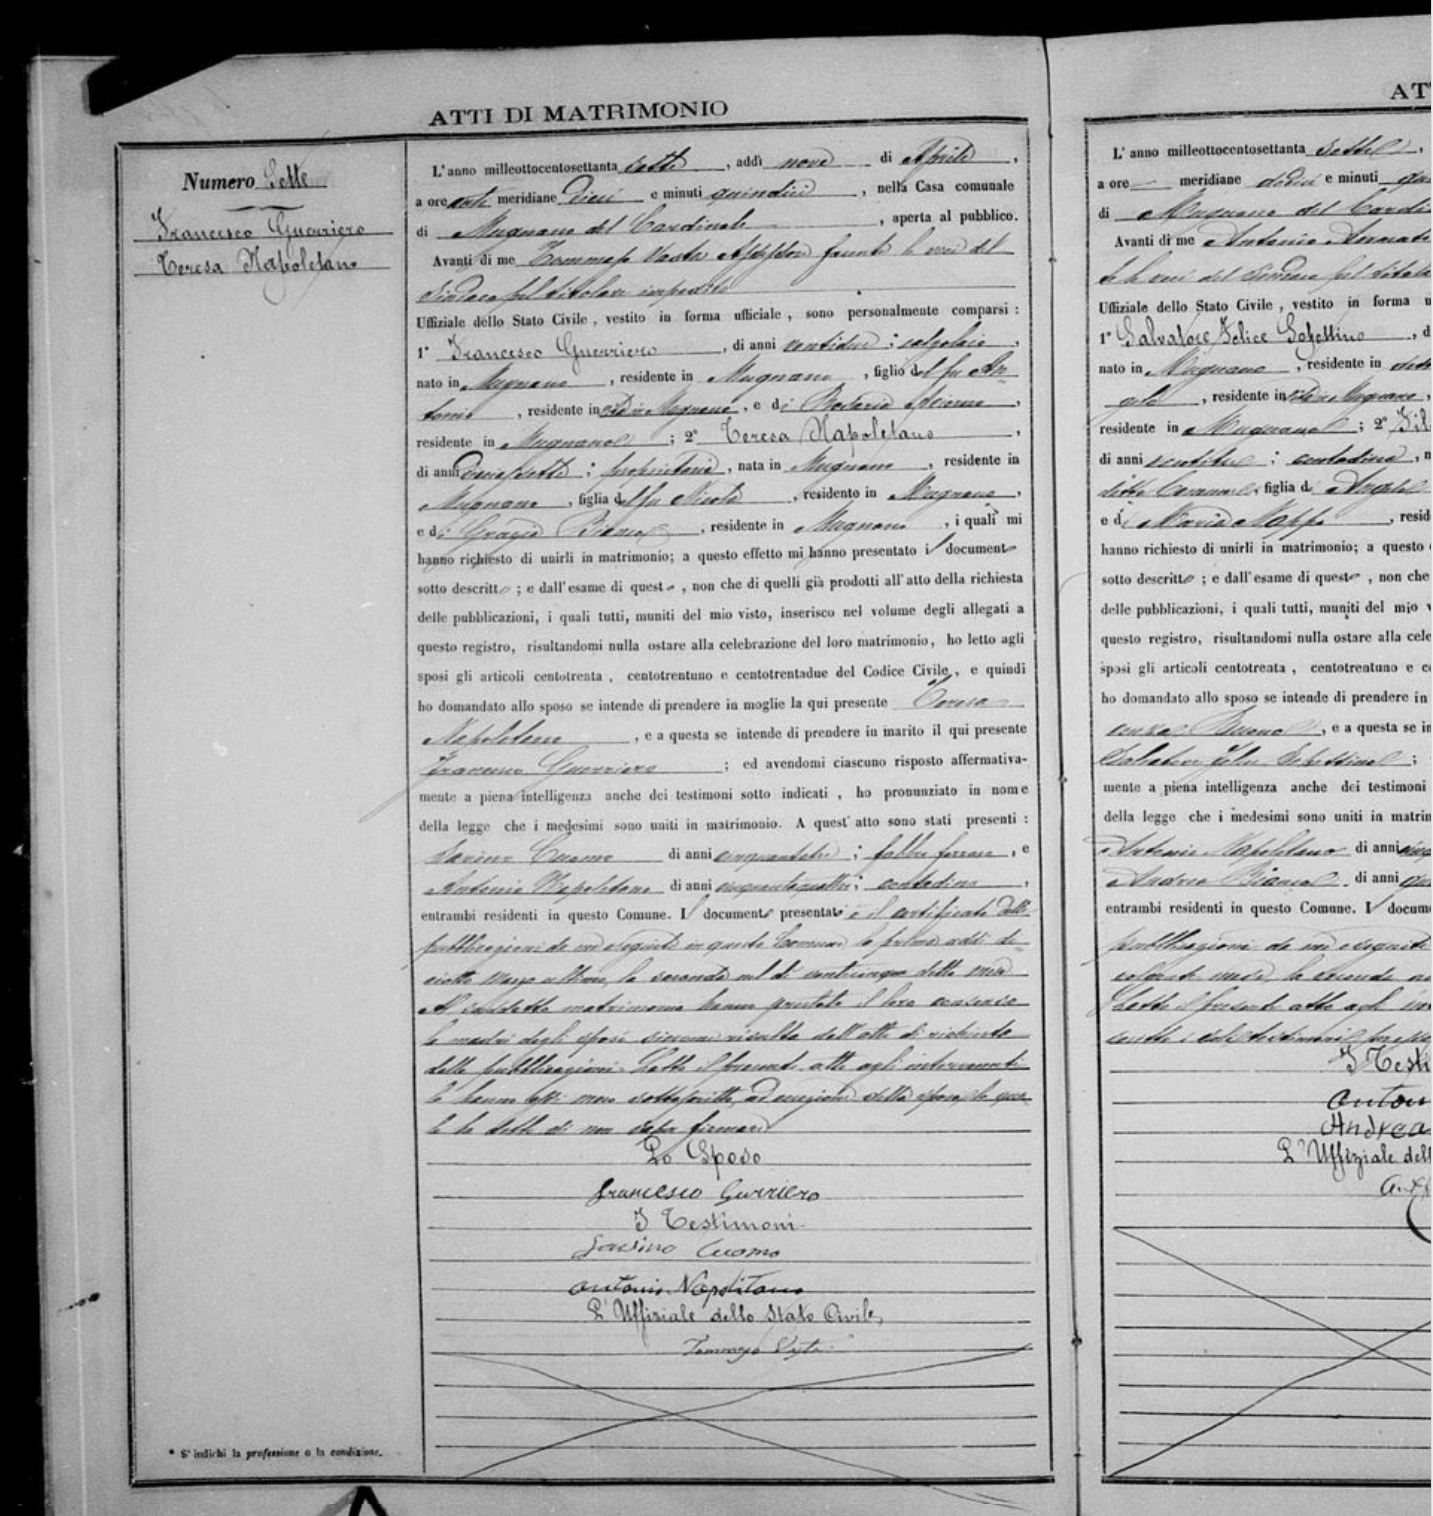 ATTI DI MATRIMONIO
Numero Sette
Francesco Guerriero
Teresa Napoletano
L'anno milleottocentosettanta sette, addì nove di Aprile,
a ore anti meridiane dieci e minuti quindici, nella Casa comunale
di Mugnano del Cardinale, aperta al pubblico.
Avanti di me Tommaso Vasta Assessore facente le veci del
Sindaco pel titolare impedito
Uffiziale dello Stato Civile, vestito in forma ufficiale, sono personalmente comparsi:
1° Francesco Guerriero, di anni ventidue; calzolaio,
nato in Mugnano, residente in Mugnano, figlio del fu An-
tonio, residente in vita in Mugnano, e di,
residente in Mugnano; 2° Teresa Napoletano,
di anni diciassette; proprietaria, nata in Mugnano, residente in
Mugnano, figlia del fu Nicola, residente in Mugnano,
e di Grazia Bianco, residente in Mugnano, i quali mi
hanno richiesto di unirli in matrimonio; a questo effetto mi hanno presentato il documento
sotto descritto; e dall'esame di questo, non che di quelli già prodotti all'atto della richiesta
delle pubblicazioni, i quali tutti, muniti del mio visto, inserisco nel volume degli allegati a
questo registro, risultandomi nulla ostare alla celebrazione del loro matrimonio, ho letto agli
sposi gli articoli centotrenta, centotrentuno e centotrentadue del Codice Civile, e quindi
ho domandato allo sposo se intende di prendere in moglie la qui presente Teresa
Napoletano, e a questa se intende di prendere in marito il qui presente
Francesco Guerriero; ed avendomi ciascuno risposto affermativa-
mente a piena intelligenza anche dei testimoni sotto indicati, ho pronunziato in nome
della legge che i medesimi sono uniti in matrimonio. A quest'atto sono stati presenti:
Savino Cuomo di anni cinquantatre; fabbro ferraro, e
Antonio Napoletano di anni cinquantaquattro; contadino,
entrambi residenti in questo Comune. Il documento presentato è il certificato delle
pubblicazioni da me eseguite in questo Comune la prima addì di-
ciotto Marzo ultimo, la seconda nel dì venticinque detto mese
Al suddetto matrimonio hanno prestato il loro consenso
le madri degli sposi siccome risulta dall'atto di richiesta
delle pubblicazioni. Letto il presente atto agli intervenuti
lo hanno tutti meco sottoscritto, ad eccezione della sposa, la qua-
le ha detto di non saper firmare
Lo Sposo
Francesco Gurriero
I Testimoni
Savino Cuomo
Antonio Napolitano
L'Uffiziale dello Stato Civile,
Tommaso Vasta
* S'indichi la professione o la condizione.
AT
L'anno milleottocentosettanta sette,
a ore meridiane dodici e minuti
di Mugnano del Cardi
Avanti di me Antonio
le veci del Sindaco pel titola
Uffiziale dello Stato Civile, vestito in forma u
1° Salvatore Felice, d
nato in Mugnano, residente in detto
gelo, residente in vita in Mugnano,
residente in Mugnano; 2° Fil
di anni ventitre; contadina, n
detto Comune, figlia di Angelo
e di Maria, resid
hanno richiesto di unirli in matrimonio; a questo
sotto descritto; e dall'esame di questo, non che
delle pubblicazioni, i quali tutti, muniti del mio v
questo registro, risultandomi nulla ostare alla cele
sposi gli articoli centotrenta, centotrentuno e ce
ho domandato allo sposo se intende di prendere in
, e a questa se in
Salvatore Felice;
mente a piena intelligenza anche dei testimoni
della legge che i medesimi sono uniti in matrim
Antonio Napolitano di anni cinq
Andrea Bianco di anni
entrambi residenti in questo Comune. Il docum
pubblicazioni da me eseguite
mese, la seconda
Letto il presente atto agli in
I Testi
Anton
Andrea
L'Uffiziale dell